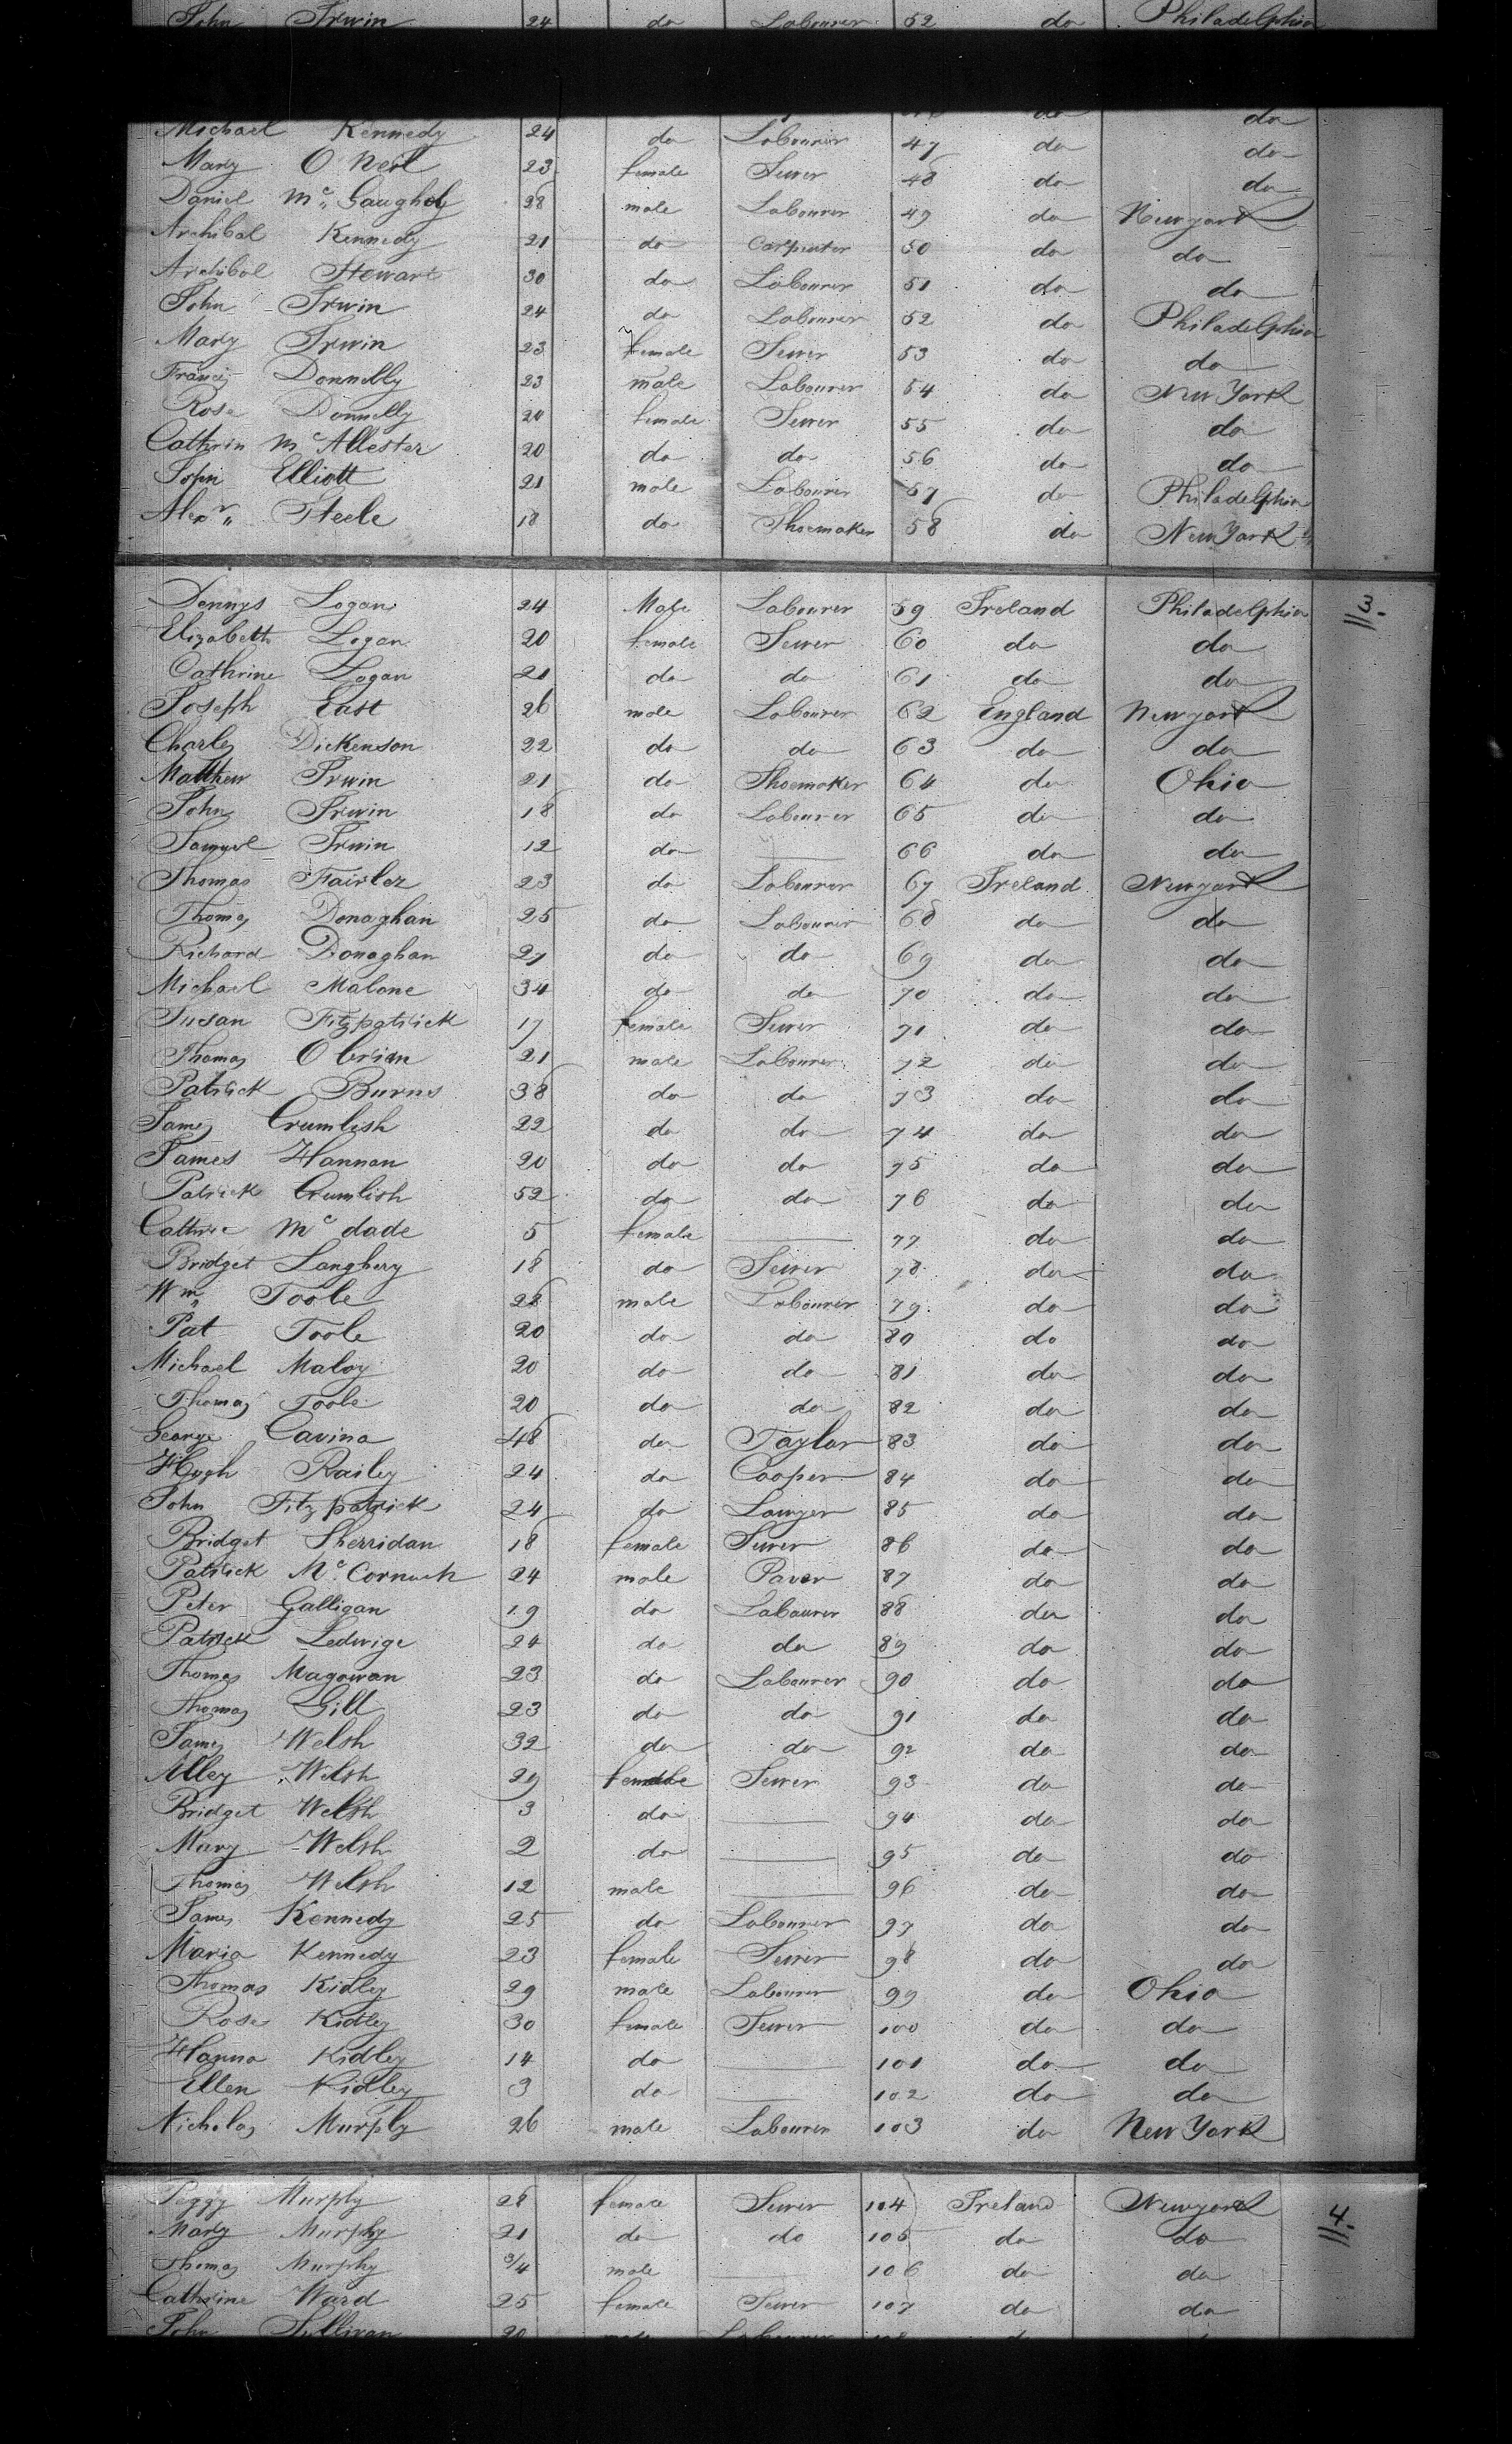 John Irwin 24 do Labourer 52 do Philadelphia
do do
Michael Kennedy 24 do Labourer 47 do do
Mary O Neil 23 female Sewer 48 do do
Daniel Mc Gaughey 28 male Labourer 49 do Newyork
Archibal Kennedy 21 do Carpenter 50 do do
Archibal Stewart 30 do Labourer 51 do do
John Irwin 24 do Labourer 52 do Philadelphia
Mary Irwin 23 female Sewer 53 do do
Francis Donnelly 23 male Labourer 54 do New York
Rose Donnelly 20 female Sewer 55 do do
Cathrin Mc Allester 20 do do 56 do do
John Elliott 21 male Labourer 57 do Philadelphia
Alexr Steele 18 do Shoemaker 58 do New York
Dennys Logan 24 Male Labourer 59 Ireland Philadelphia 3
Elizabeth Logan 20 female Sewer 60 do do
Cathrine Logan 21 do do 61 do do
Joseph East 26 male Labourer 62 England Newyork
Charles Dickenson 22 do do 63 do do
Matthew Irwin 21 do Shoemaker 64 do Ohio
John Irwin 18 do Labourer 65 do do
Samuel Irwin 12 do 66 do do
Thomas Fairlez 23 do Labourer 67 Ireland Newyork
Thomas Donaghan 25 do Labourer 68 do do
Richard Donaghan 27 do do 69 do do
Michael Malone 34 do do 70 do do
Susan Fitzpatrick 17 female Sewer 71 do do
Thomas O brian 21 male Labourer 72 do do
Patrick Burns 38 do do 73 do do
James Crumlish 22 do do 74 do do
James Hannan 20 do do 75 do do
Patrick Crumlish 52 do do 76 do do
Cathrie Mc dade 5 female 77 do do
Bridget Langhery 18 do Sewer 78 do do
Wm Toole 28 male Labourer 79 do do
Pat Toole 20 do do 80 do do
Michael Maloy 20 do do 81 do do
Thomas Toole 20 do do 82 do do
George Cavina 48 do Taylor 83 do do
Hugh Railey 24 do Cooper 84 do do
John Fitzpatrick 24 do Sawyer 85 do do
Bridget Sherridan 18 female Sewer 86 do do
Patrick Mc Cormick 24 male Paver 87 do do
Peter Galligan 19 do Labourer 88 do do
Patrick Ledwige 24 do do 89 do do
Thomas Magowan 23 do Labourer 90 do do
Thomas Gill 23 do do 91 do do
James Welsh 32 do do 92 do do
Alley Welsh 29 female Sewer 93 do do
Bridget Welsh 3 do 94 do do
Mary Welsh 2 do 95 do do
Thomas Welsh 12 male 96 do do
James Kennedy 25 do Labourer 97 do do
Maria Kennedy 23 female Sewer 98 do do
Thomas Kidley 29 male Labourer 99 do Ohio
Rose Kidley 30 female Sewer 100 do do
Hanna Kidley 14 do 101 do do
Ellen Kidley 3 do 102 do do
Nicholas Murphy 26 male Labourer 103 do New York
Peggy Murphy 28 female Sewer 104 Ireland Newyork 4
Mary Murphy 21 do do 105 do do
Thomas Murphy 3/4 male 106 do do
Cathrine Ward 25 female Sewer 107 do do
John Sullivan 20 male Labourer 108 do